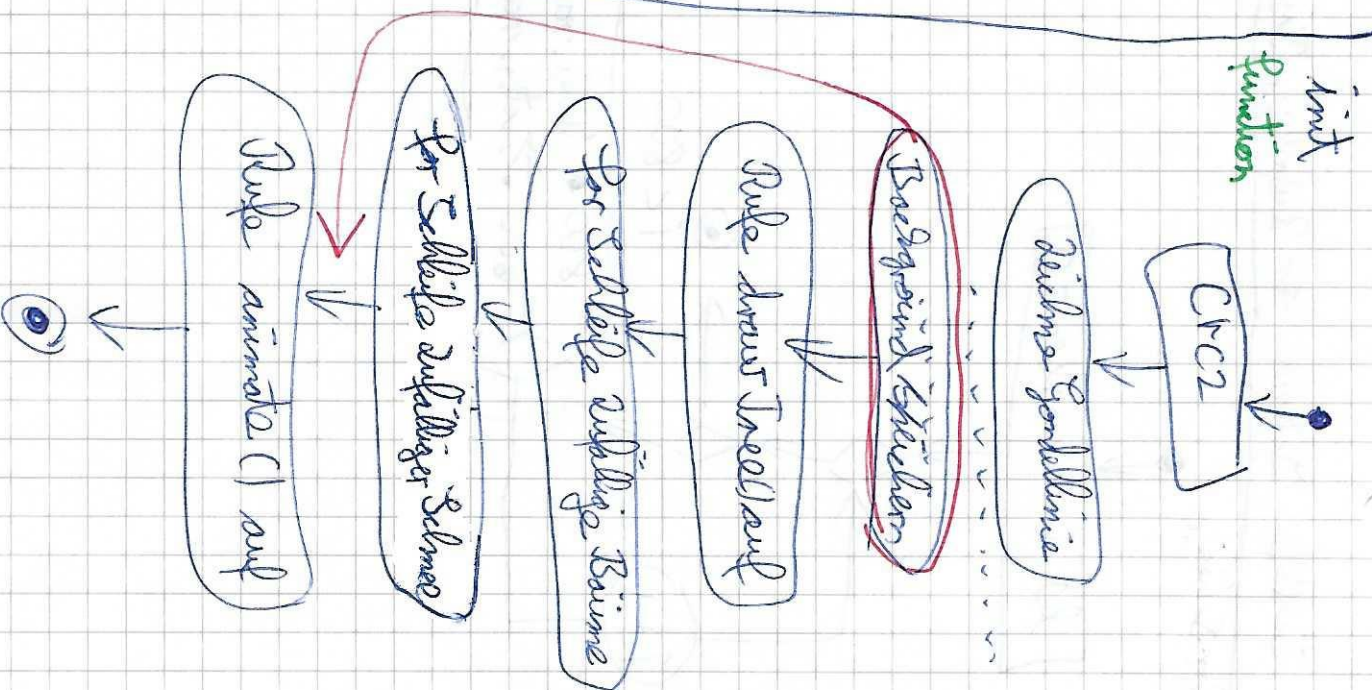 init
function
Crc2
Zeichne Gondellinie
Background speichern
Rufe drawTree() auf
for Schleife zufällige Bäume
for Schleife zufälliger Schnee
Rufe animate() auf